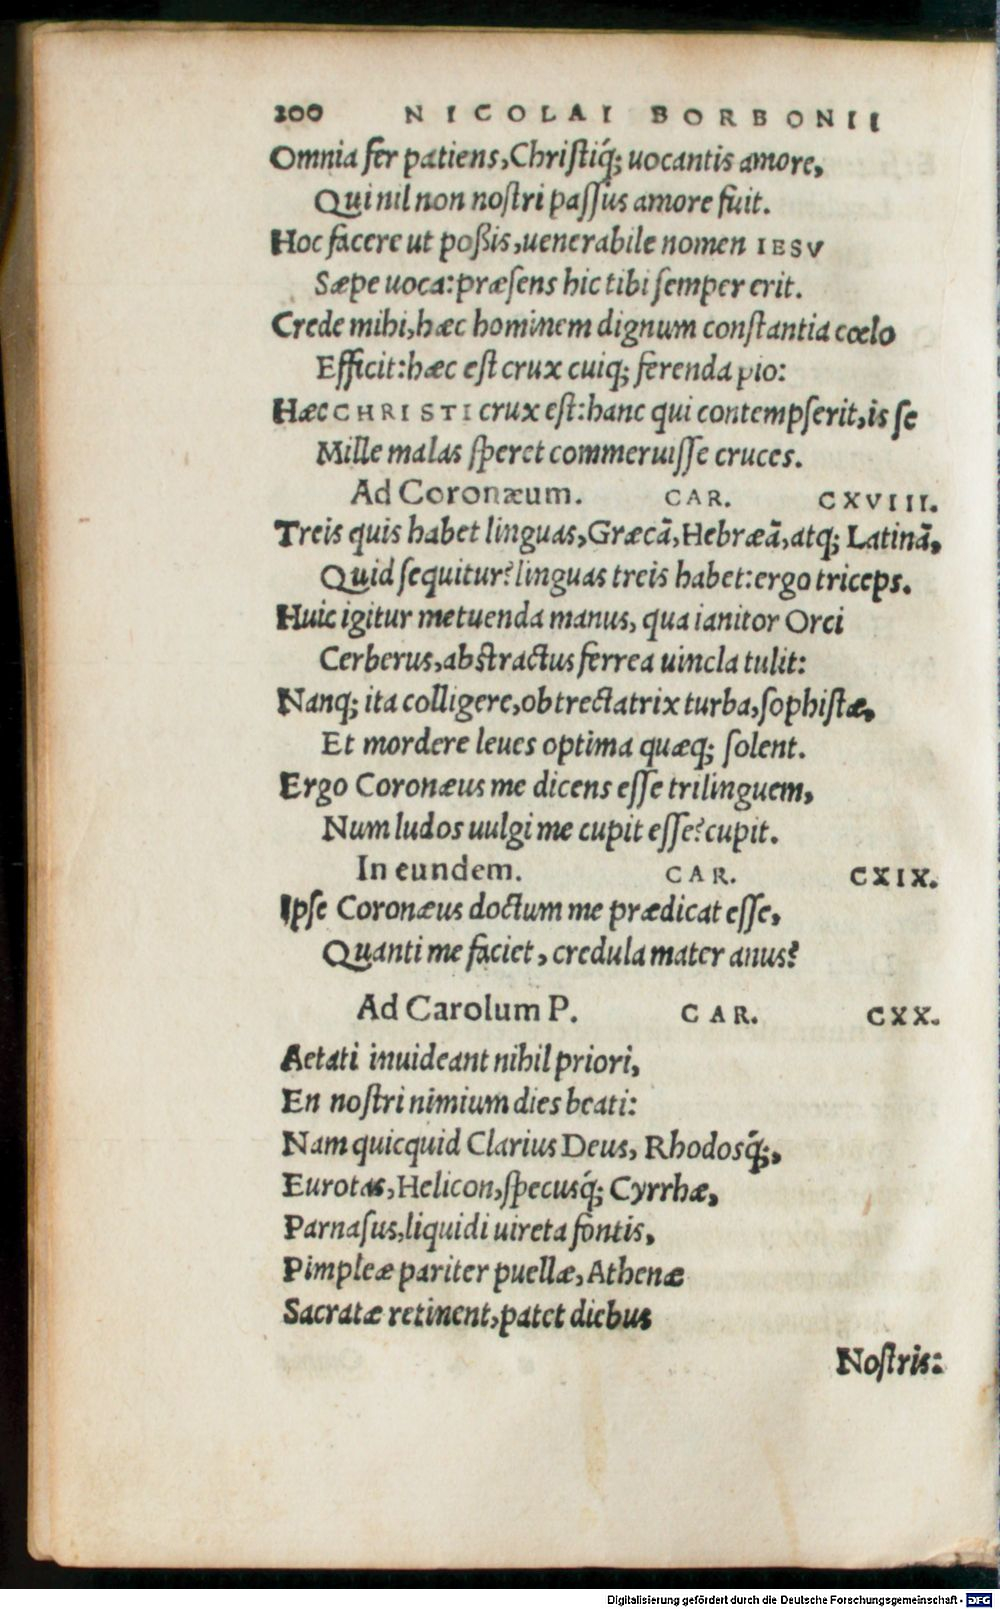 200 NICOLAI BORBONII
Omnia fer patiens, Christiq́; uocantis amore,
Qui nil non nostri passus amore fuit.
Hoc facere ut poßis, uenerabile nomen IESV
Sæpe uoca: præsens hic tibi semper erit.
Crede mihi, hæc hominem dignum constantia cœlo
Efficit: hæc est crux cuiq; ferenda pio:
Hæc CHRISTI crux est: hanc qui contempserit, is se
Mille malas speret commeruisse cruces.
Ad Coronæum. CAR. CXVIII.
Treis quis habet linguas, Græcā, Hebræā, atq; Latinā,
Quid sequitur? linguas treis habet: ergo triceps.
Huic igitur metuenda manus, qua ianitor Orci
Cerberus, abstractus ferrea uincla tulit:
Nanq; ita colligere, obtrectatrix turba, sophistæ,
Et mordere leues optima quæq; solent.
Ergo Coronæus me dicens esse trilinguem,
Num ludos uulgi me cupit esse? cupit.
In eundem. CAR. CXIX.
Ipse Coronæus doctum me prædicat esse,
Quanti me faciet, credula mater anus?
Ad Carolum P. CAR. CXX.
Aetati inuideant nihil priori,
En nostri nimium dies beati:
Nam quicquid Clarius Deus, Rhodosq́;,
Eurotas, Helicon, specusq́; Cyrrhæ,
Parnasus, liquidi uireta fontis,
Pimpleæ pariter puellæ, Athenæ
Sacratæ retinent, patet diebus
Nostris:
Digitalisierung gefördert durch die Deutsche Forschungsgemeinschaft - DFG